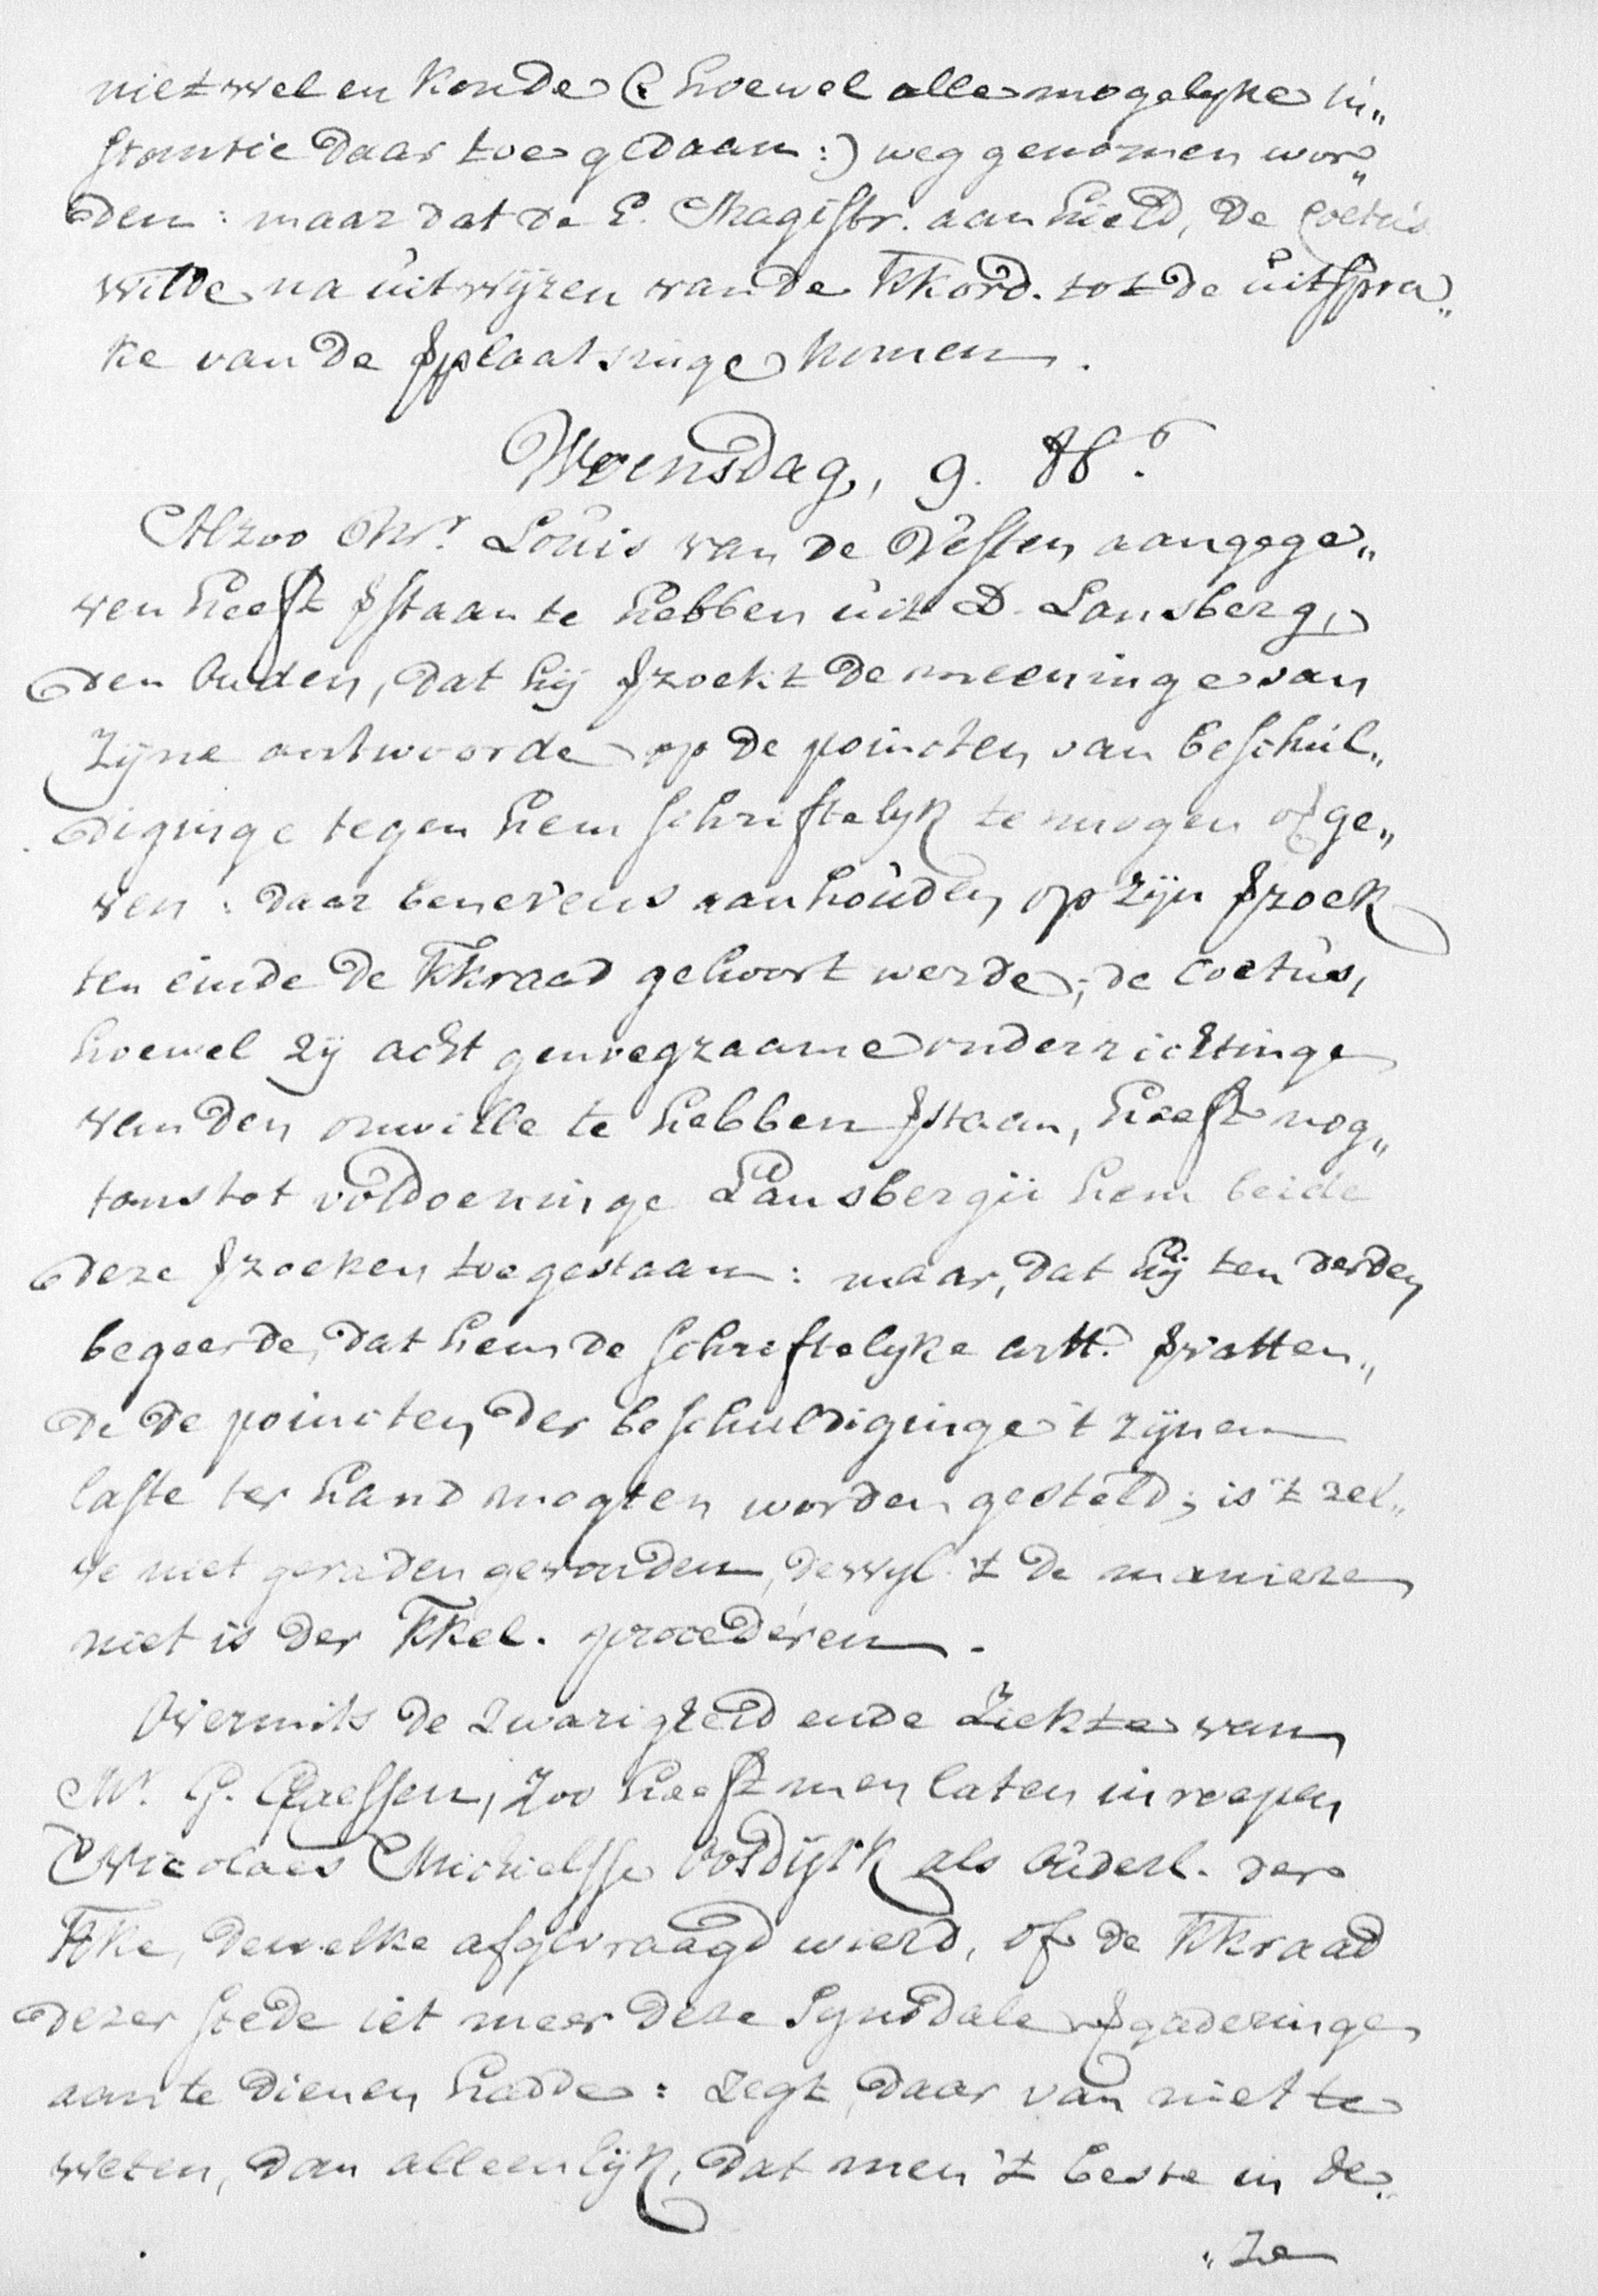 niet wel en konde (: hoewel alle mogelyke in„
stantie daar toe gedaan :) weg genomen wor„
den : maar dat de E. Magistr. aanhield, de Coetus
wilde na uitwijzen van de KKord. tot de uitspra„
ke van de ꝟplaatsinge komen.
Woensdag, 9. 8b.r
Alzoo Mr. Louis van de Vesten aangege„
ven heeft ꝟstaan te hebben uit D. Lansberg,
den Ouden, dat hij ꝟzoekt de meeninge van
zijne antwoorde op de poincten van beschul„
diginge tegen hem schriftelyk te mogen ofge„
ven : daar benevens aanhouden op zijn ꝟzoek
ten einde de KKraad gehoort werde; de Coetus,
hoewel zij acht genoegzaame onderrichtinge
van den onwille te hebben ꝟstaan, heeft nog„
tans tot voldoeninge Lansbergii hem beide
deze ꝟzoeken toegestaan : maar, dat hij ten derden
begeerde, dat hem de schriftelyke artt. ꝟvatten„
de de poincten der beschuldiginge t zijnen
laste ter hand mogten worden gesteld; is 't zel„
ve niet geraden gevonden, dewyl 't de maniere
niet is der KKel. procedéren.
Overmits de zwarigheid ende ziekte van
Mr. G. Claessen, zoo heeft men laten inroepen
Nicolaes Michielsse Bosdijk als Ouderl. der
KKe, dewelke afgevraagd wierd, of de KKraad
dezer stede iet meer deze Synodale ꝟgaderinge
aan te dienen hadde : zegt, daar van niet te
weten, dan alleenlijk, dat men 't beste in de„
„ze